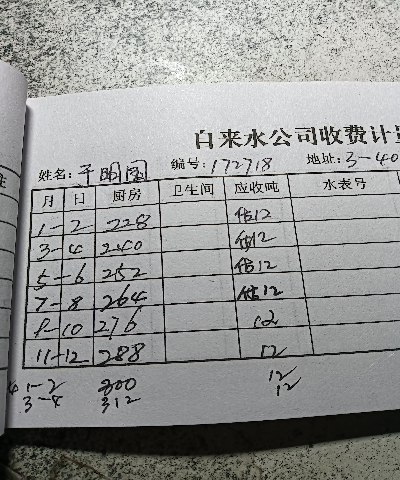 自来水公司收费计
姓名: 于明国 编号: 172718 地址: 3-40
月 日 厨房 卫生间 应收吨 水表号
1-2 228 估12
3-4 240 估12
5-6 252 估12
7-8 264 估12
9-10 276 12
11-12 288 12
1-2 300 12
3-4 312 12